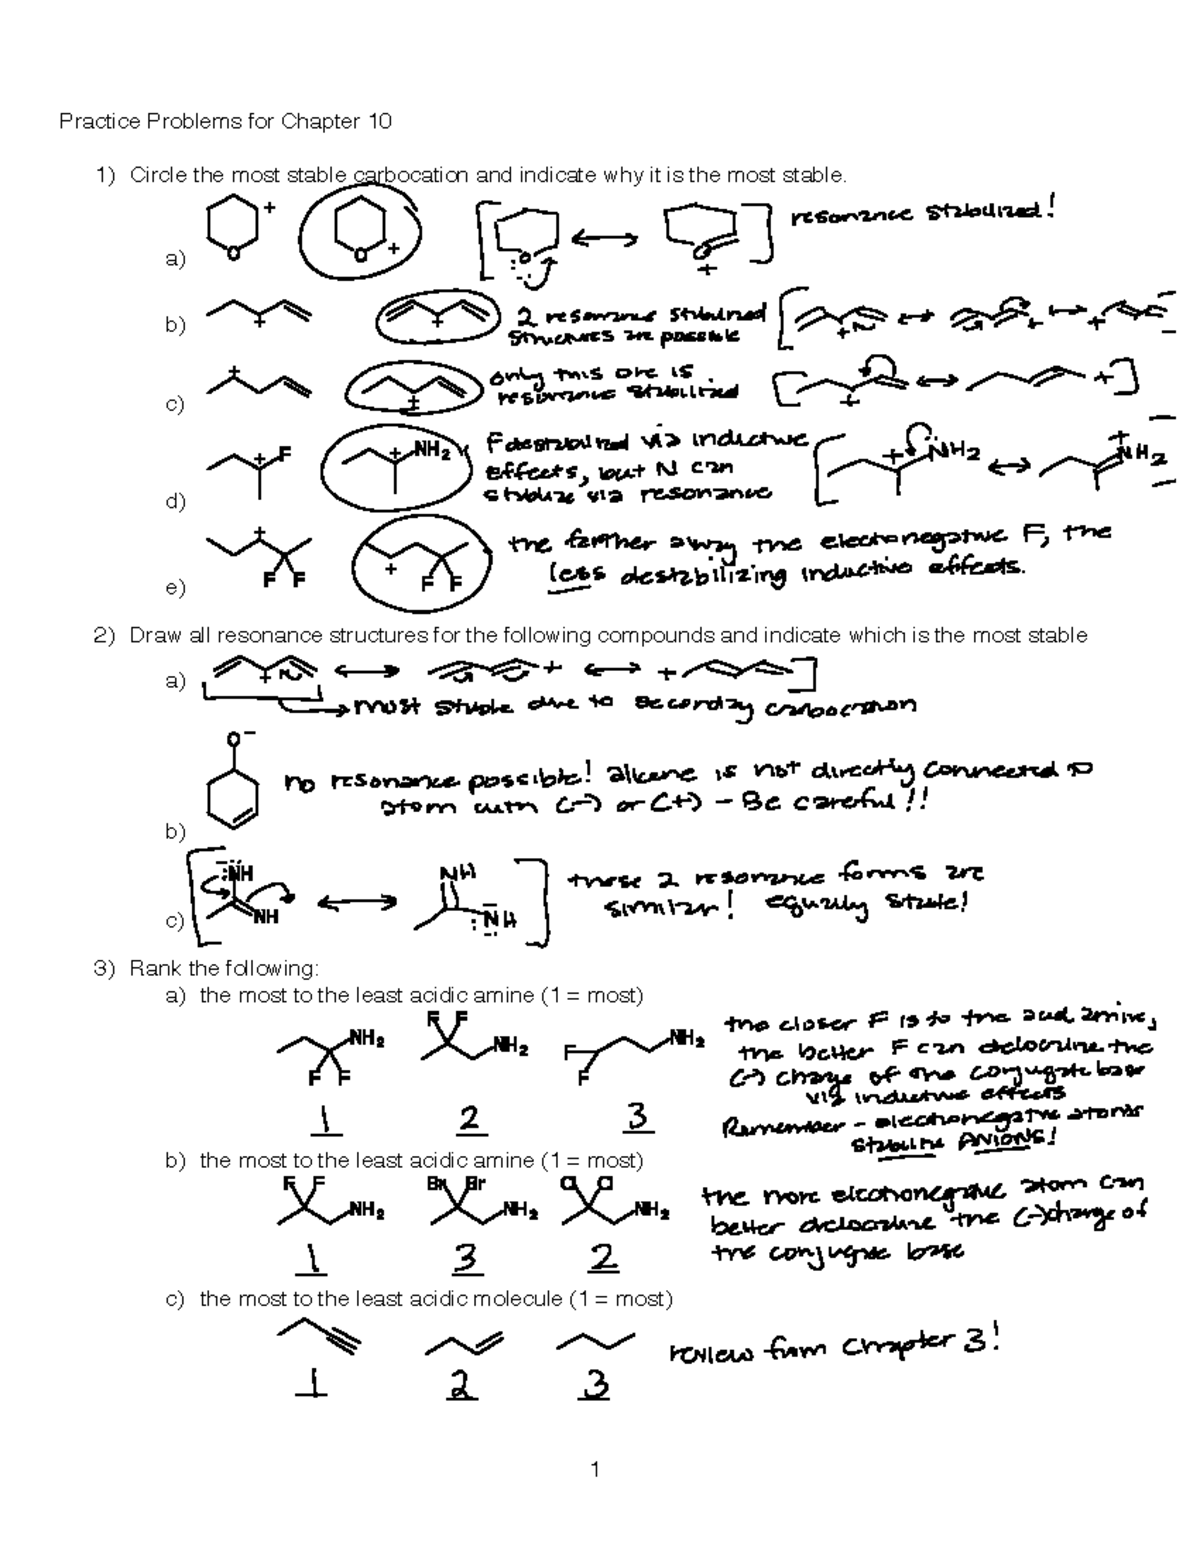 Practice Problems for Chapter 10
1) Circle the most stable carbocation and indicate why it is the most stable.
a) + O O + :O: O + resonance stabilized!
b) + + 2 resonance stabilized
structures are possible + + +
c) + + only this one is
resonance stabilized + +
d) + F + NH2 F destabilized via inductive
effects, but N can
stabilize via resonance + NH2 + NH2
e) + F F + F F the farther away the electronegative F, the
less destabilizing inductive effects.
2) Draw all resonance structures for the following compounds and indicate which is the most stable
a) + + +
most stable due to secondary carbocation
b) O− no resonance possible! alkene is not directly connected to
atom with (−) or (+) - Be careful!!
c) :NH NH NH :NH these 2 resonance forms are
similar! equally stable!
3) Rank the following:
a) the most to the least acidic amine (1 = most)
NH2 F F F F NH2 F F NH2
1 2 3
the closer F is to the acid amine,
the better F can delocalize the
(−) charge of the conjugate base
via inductive effects
Remember - electronegative atoms
stabilize ANIONS!
b) the most to the least acidic amine (1 = most)
F F NH2 Br Br NH2 Cl Cl NH2
1 3 2
the more electronegative atom can
better delocalize the (−) charge of
the conjugate base
c) the most to the least acidic molecule (1 = most)
1 2 3
review from Chapter 3!
1